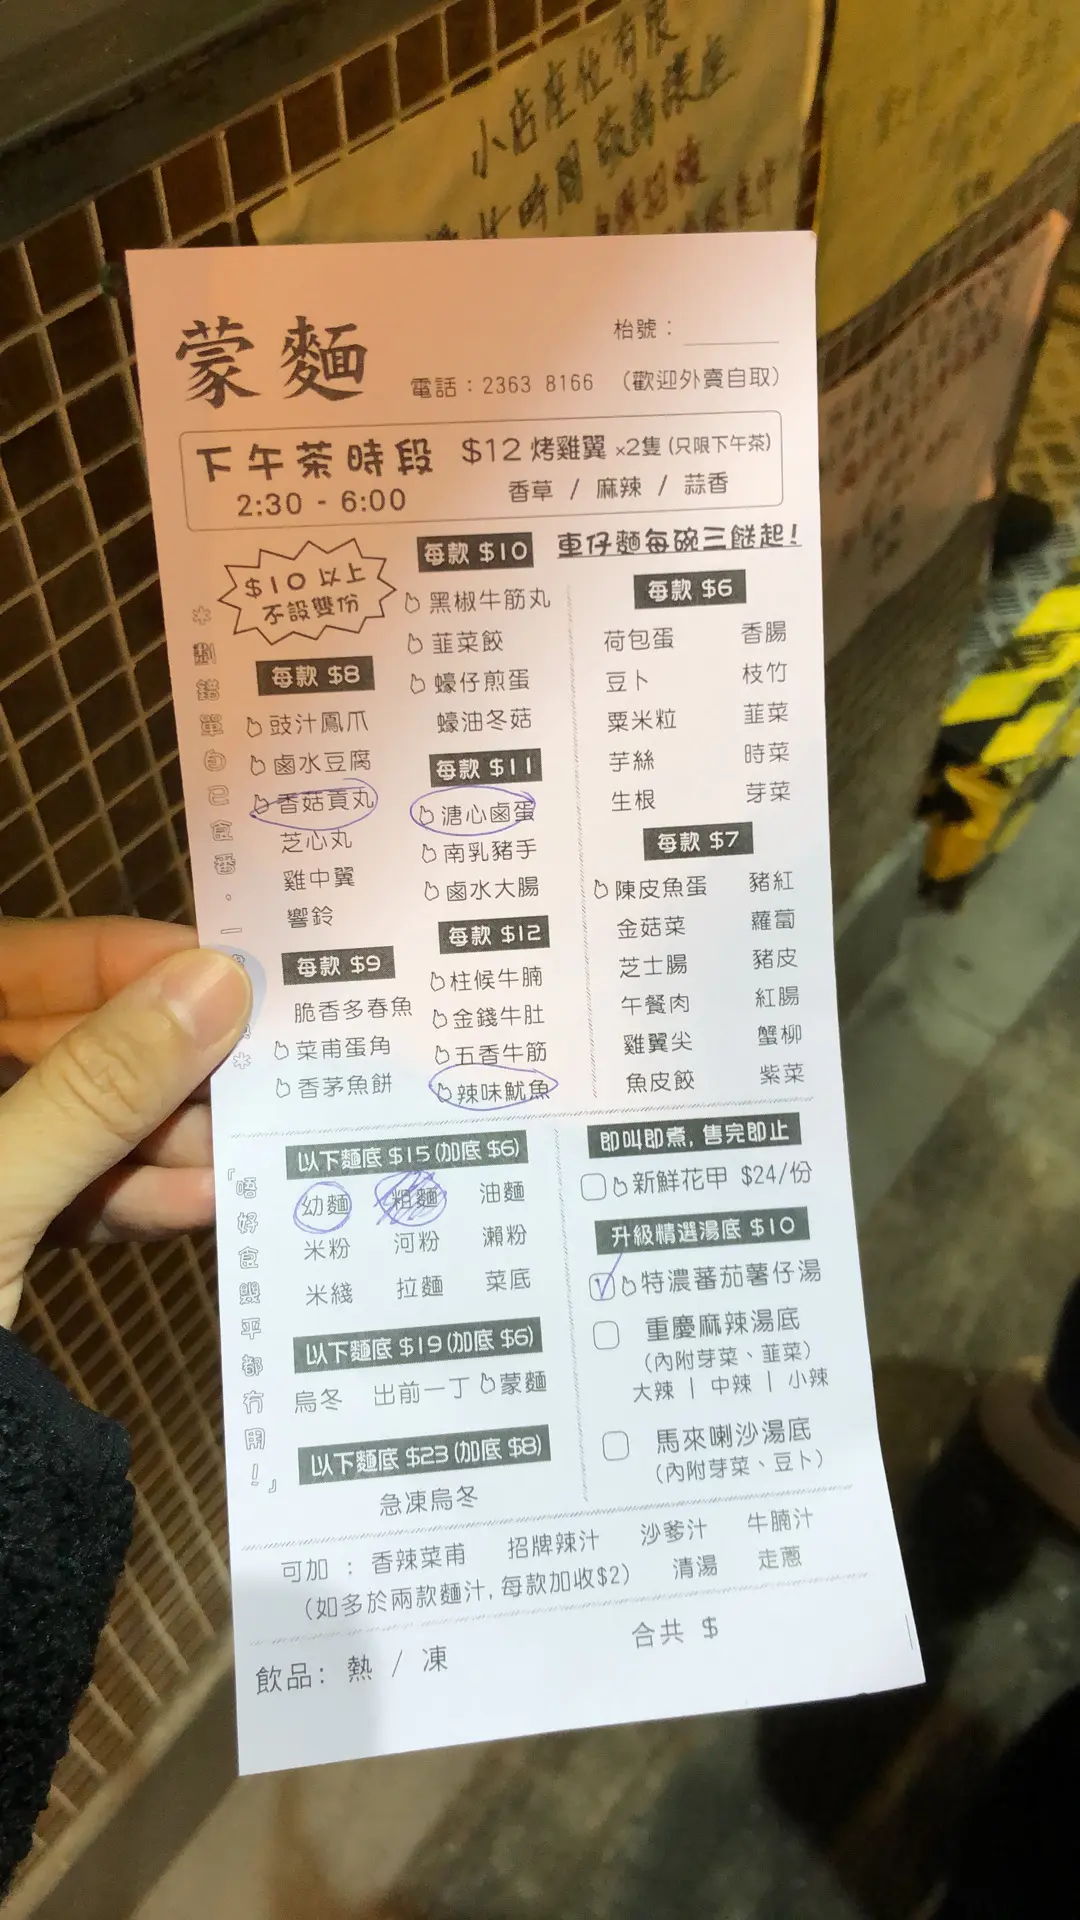 小店座位有限
時間
蒙麵
枱號：
電話：2363 8166 （歡迎外賣自取）
下午茶時段 $12 烤雞翼 x2隻 (只限下午茶)
2:30 - 6:00 香草 / 麻辣 / 蒜香
$10 以上
不設雙份
每款 $8
豉汁鳳爪
鹵水豆腐
香菇貢丸
芝心丸
雞中翼
響鈴
每款 $9
脆香多春魚
菜甫蛋角
香茅魚餅
每款 $10
黑椒牛筋丸
韮菜餃
蠔仔煎蛋
蠔油冬菇
每款 $11
溏心鹵蛋
南乳豬手
鹵水大腸
每款 $12
柱候牛腩
金錢牛肚
五香牛筋
辣味魷魚
車仔麵每碗三餸起!
每款 $6
荷包蛋 香腸
豆卜 枝竹
粟米粒 韮菜
芋絲 時菜
生根 芽菜
每款 $7
陳皮魚蛋 豬紅
金菇菜 蘿蔔
芝士腸 豬皮
午餐肉 紅腸
雞翼尖 蟹柳
魚皮餃 紫菜
＊劃錯單自己食番．一
＊
以下麵底 $15 (加底 $6)
幼麵 粗麵 油麵
米粉 河粉 瀨粉
米綫 拉麵 菜底
以下麵底 $19 (加底 $6)
烏冬 出前一丁 蒙麵
以下麵底 $23 (加底 $8)
急凍烏冬
「唔好食嬲平都冇用！」
即叫即煮, 售完即止
新鮮花甲 $24/份
升級精選湯底 $10
特濃蕃茄薯仔湯
重慶麻辣湯底
(內附芽菜、韮菜)
大辣 | 中辣 | 小辣
馬來喇沙湯底
(內附芽菜、豆卜)
可加 : 香辣菜甫 招牌辣汁 沙爹汁 牛腩汁
(如多於兩款麵汁, 每款加收$2) 清湯 走蔥
合共 $
飲品: 熱 / 凍